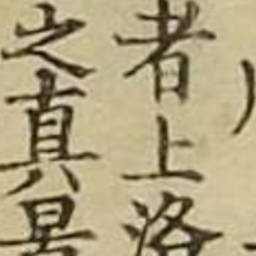 者上洛
之真景